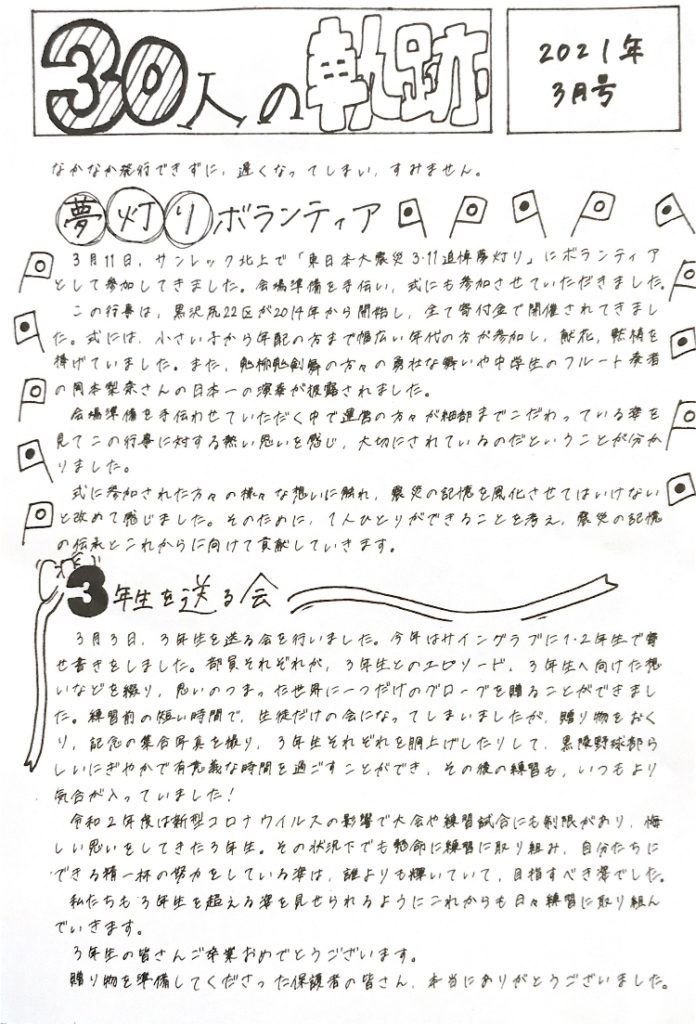 30人の軌跡
2021年
3月号
なかなか発行できずに、遅くなってしまい、すみません。
夢灯りボランティア
3月11日、サンレック北上で「東日本大震災3・11追悼夢灯り」にボランティア
として参加してきました。会場準備を手伝い、式にも参加させていただきました。
この行事は、黒沢尻22区が2014年から開始し、全て寄付金で開催されてきまし
た。式には、小さい子から年配の方まで幅広い年代の方が参加し、献花、黙祷を
捧げていました。また、鬼柳鬼剣舞の方々の勇壮な舞いや中学生のフルート奏者
の岡本梨奈さんの日本一の演奏が披露されました。
会場準備を手伝わせていただく中で運営の方々が細部までこだわっている姿を
見てこの行事に対する熱い思いを感じ、大切にされているのだということが分か
りました。
式に参加された方々の様々な想いに触れ、震災の記憶を風化させてはいけない
と改めて感じました。そのために、1人ひとりができることを考え、震災の記憶
の伝承とこれからに向けて貢献していきます。
3年生を送る会
3月3日、3年生を送る会を行いました。今年はサイングラブに1・2年生で寄
せ書きをしました。部員それぞれが、3年生とのエピソード、3年生へ向けた想
いなどを綴り、思いのつまった世界に一つだけのグローブを贈ることができまし
た。練習前の短い時間で、生徒だけの会になってしまいましたが、贈り物をおく
り、記念の集合写真を撮り、3年生それぞれを胴上げしたりして、黒陵野球部ら
しいにぎやかで有意義な時間を過ごすことができ、その後の練習も、いつもより
気合が入っていました!
令和2年度は新型コロナウイルスの影響で大会や練習試合にも制限があり、悔
しい思いをしてきた3年生。その状況下でも懸命に練習に取り組み、自分たちに
できる精一杯の努力をしている姿は、誰よりも輝いていて、目指すべき姿でした。
私たちも3年生を超える姿を見せられるようにこれからも日々練習に取り組ん
でいきます。
3年生の皆さんご卒業おめでとうございます。
贈り物を準備してくださった保護者の皆さん、本当にありがとうございました。